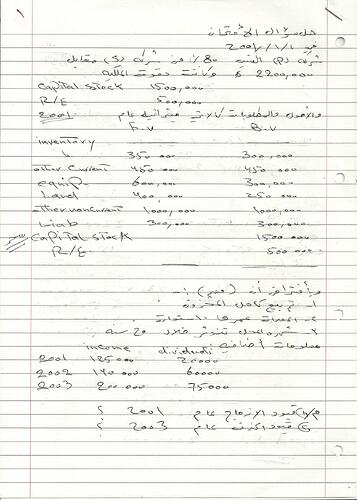 حل سؤال الامتحان
في 2001/1/1
شركة (م) اشترت 80% من شركة (س) مقابل
2200,000 $ وكانت حقوت الملكية
Capital Stock 1500,000
R/E 500,000
والاصول والمطلوبات كالاتي عام
2001 F.V B.V
inventory
350 000 300,000
other Current 450 000 450 000
equip. 600,000 300,000
Land 400,000 250 000
other noncurrent 1000,000 1000,000
Liab 300,000 300,000
Capital Stock 1500 000
R/E 500 000
وبأفتراض أن
1- تم بيع كامل المخزون
2- المعدات عمرها
3- شهرة المحل تندثر خلال 20 سنة
معلومات اضافية
income dividend
2001 125000 20000
2002 140 000 60000
2003 200 000 75000
م/ 1) قيود الازماج عام 2001 ؟
2) قيود عام 2003 ؟